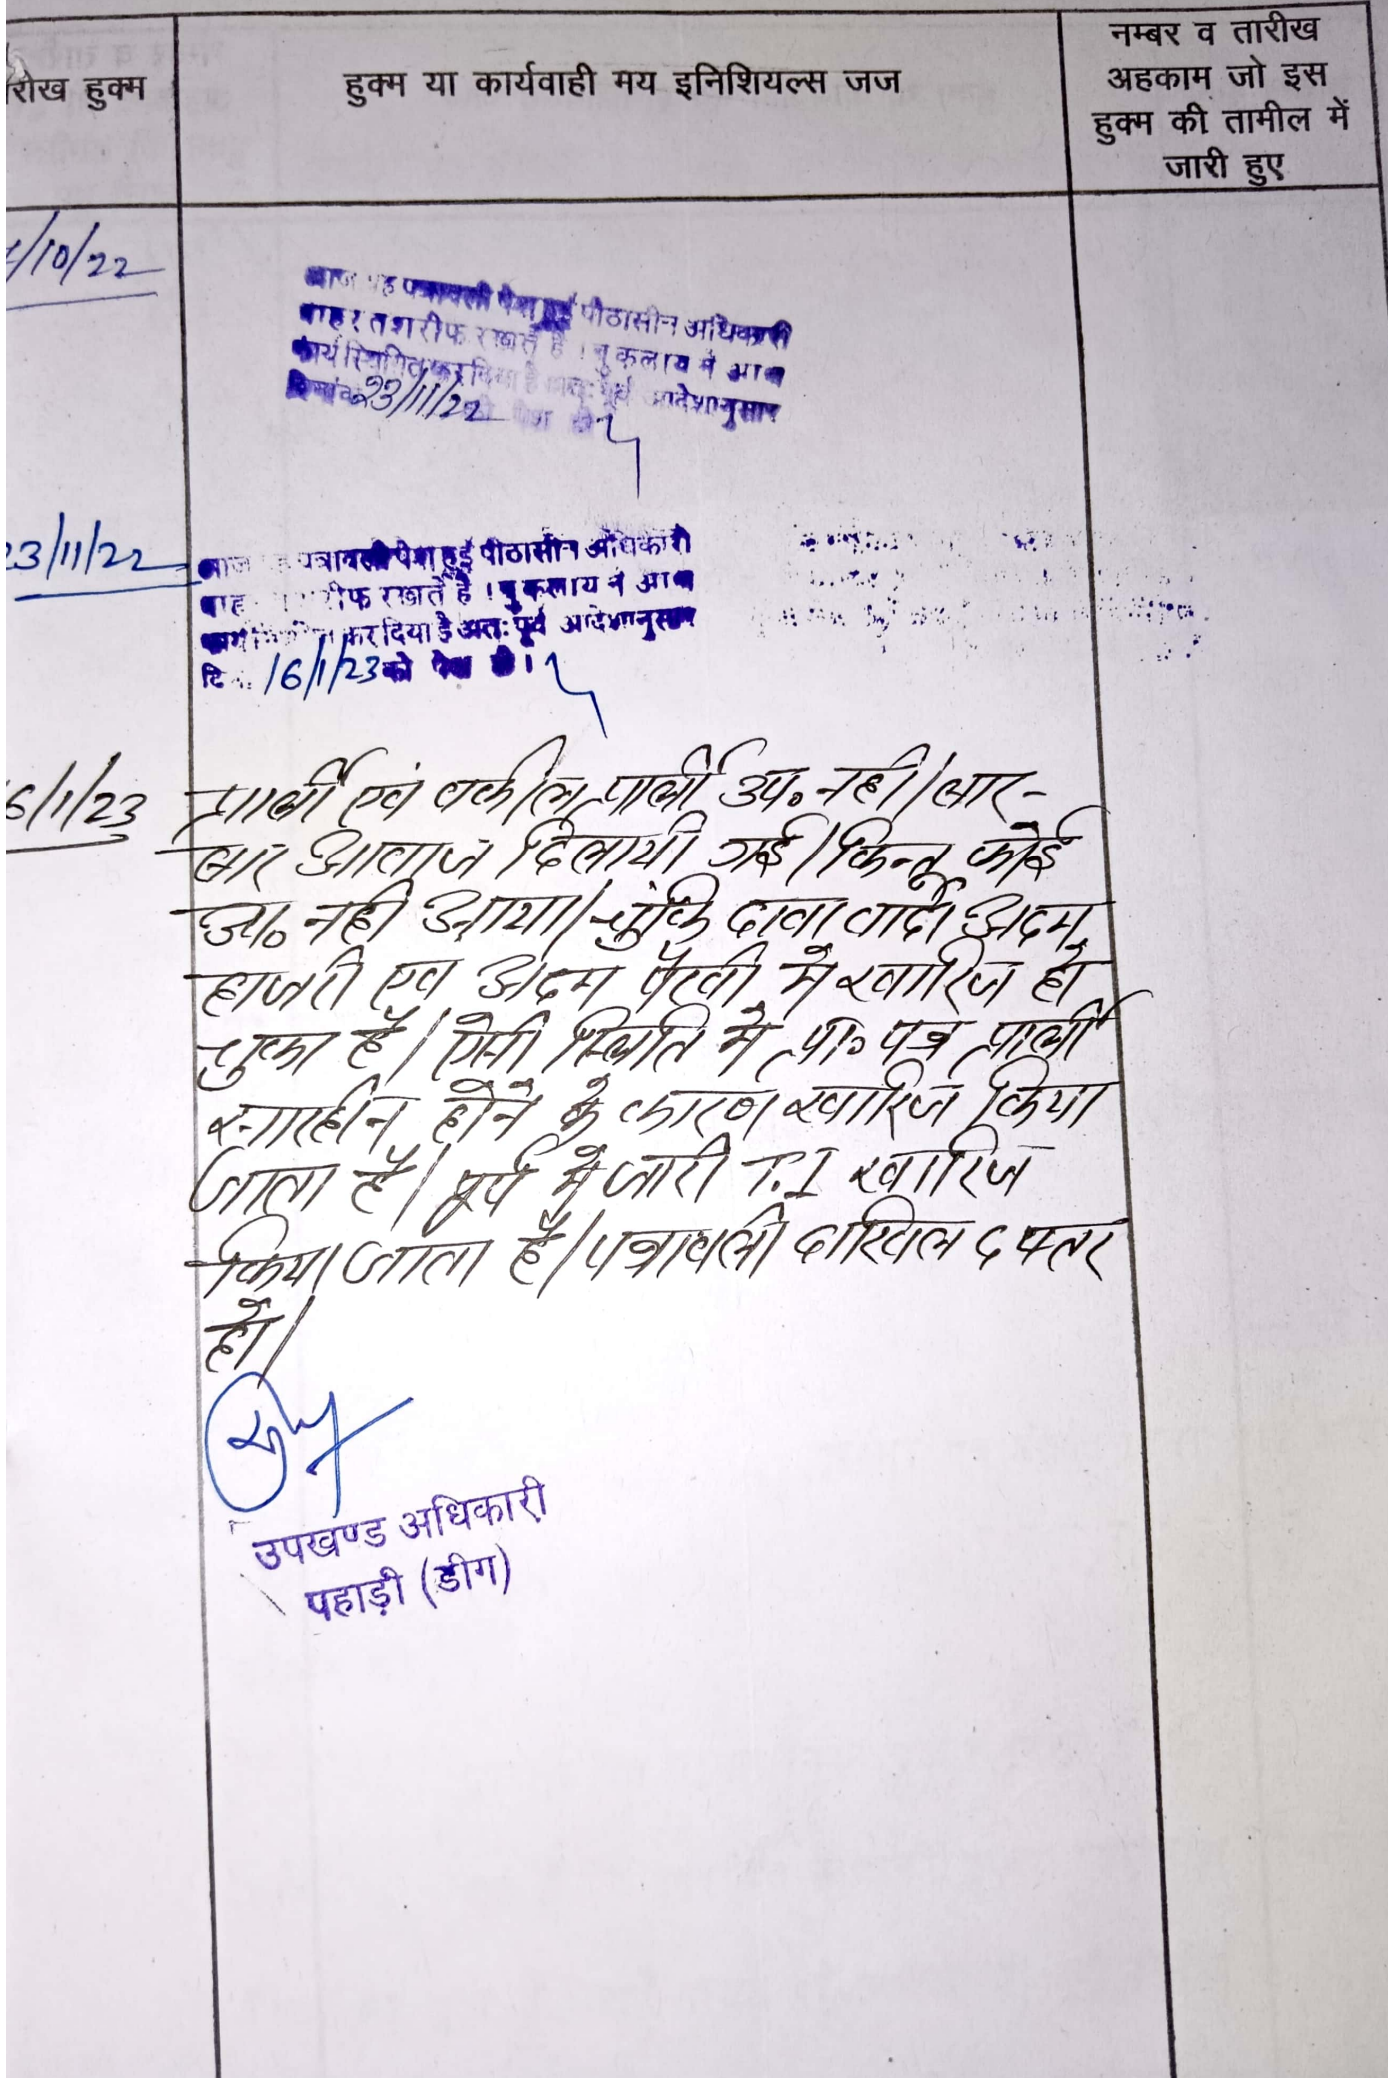 रीख हुक्म
हुक्म या कार्यवाही मय इनिशियल्स जज
नम्बर व तारीख
अहकाम जो इस
हुक्म की तामील में
जारी हुए
/10/22
पत्रावली पेश हुई पीठासीन अधिकारी
बाहर तशरीफ रखते है । वुकलाय ने आज
कार्य स्थगित कर दिया है अतः पूर्व आदेशानुसार
दिनांक 23/11/22 को पेश हो
23/11/22
आज पत्रावली पेश हुई पीठासीन अधिकारी
रीफ रखते है । वुकलाय ने आज
कर दिया है अतः पूर्व आदेशानुसार
दि 16/1/23 को पेश हो ।
6/1/23
प्रार्थी एवं वकील प्रार्थी उप० नही । बार-
बार आवाज दिलायी गई । किन्तु कोई
उप० नही आया । चुंकि दावा वादी अदम
हाजरी एव अदम पैरवी मे खारिज हो
चुका है । ऐसी स्थिति मे प्रा० पत्र प्रार्थी
सारहीन होने के कारण खारिज किया
जाता है । पूर्व मे जारी T.I खारिज
किया जाता है । पत्रावली दाखिल दफ्तर
हो ।
उपखण्ड अधिकारी
पहाड़ी (डीग)